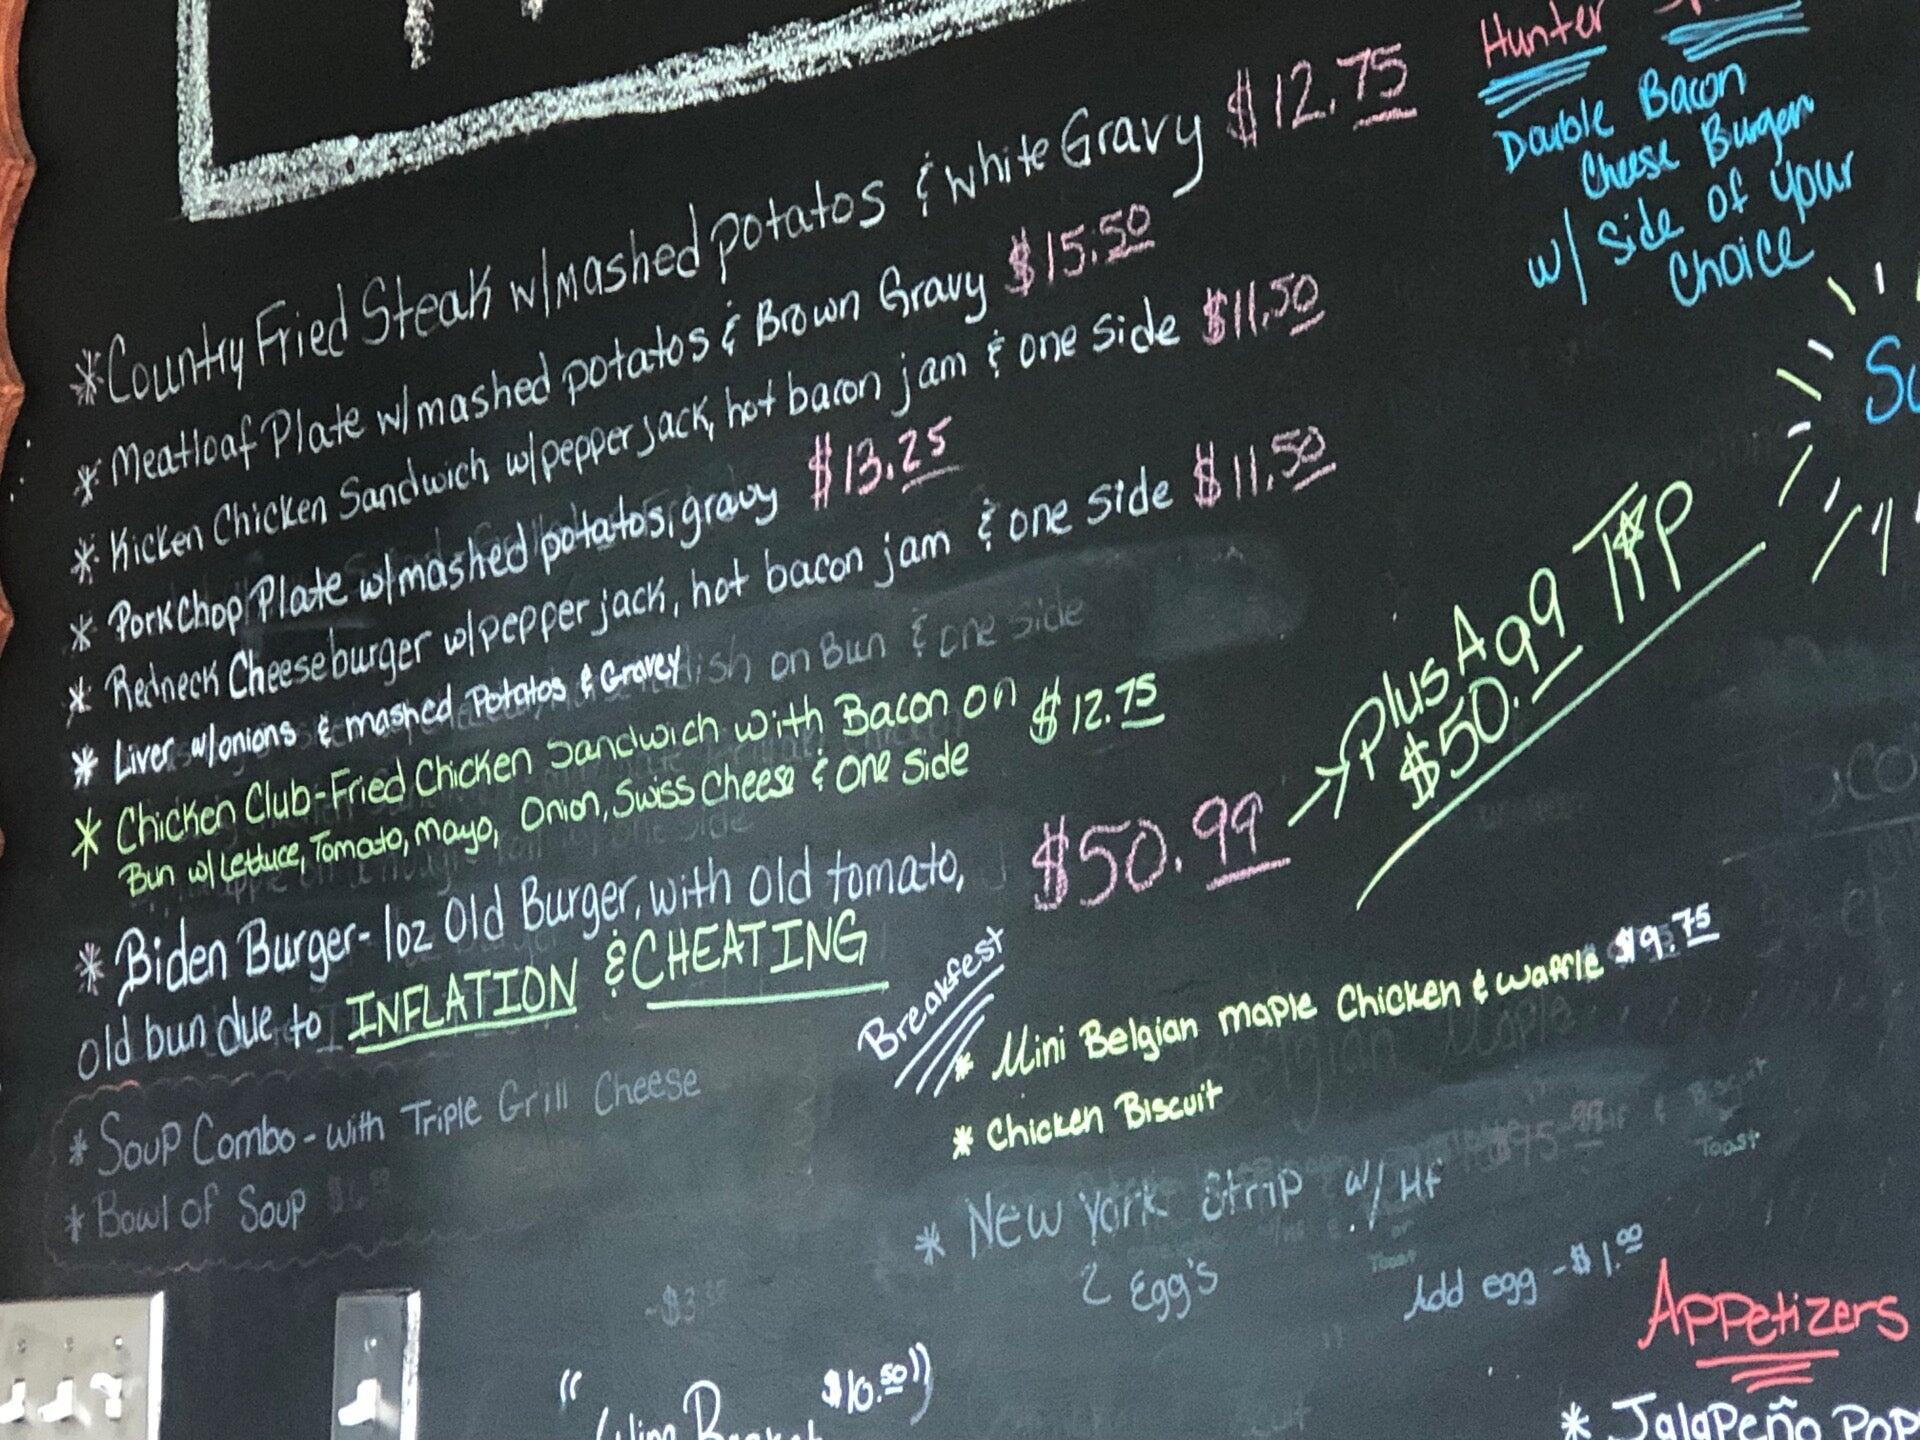 *Country Fried Steak w/mashed potatos & white Gravy $12.75
* Meatloaf Plate w/mashed potatos & Brown Gravy $15.50
* Kicken Chicken Sandwich w/pepper jack, hot bacon jam & one side $11.50
* Pork Chop Plate w/mashed potatos, gravy $13.25
* Redneck Cheeseburger w/pepper jack, hot bacon jam & one side $11.50
* Liver w/onions & mashed Potatos & Gravey
on Bun & one side
* Chicken Club-Fried Chicken Sandwich with Bacon on $12.75
Bun w/ Lettuce, Tomato, Mayo, Onion, Swiss Cheese & One Side
* Biden Burger- 1oz Old Burger, with old tomato, $50.99
old bun due to INFLATION & CHEATING
→ Plus A 99 TIP
$50.
* Soup Combo - with Triple Grill Cheese
* Bowl of Soup
Hunter
Double Bacon
Cheese Burger
w/ side of your
Choice
Breakfest
* Mini Belgian maple Chicken & Waffle $9.75
* Chicken Biscuit
* New York Strip w/ HF
2 Egg's
Toast
Add egg - $1.00
Appetizers
* Jalapeño Pop
$10.50